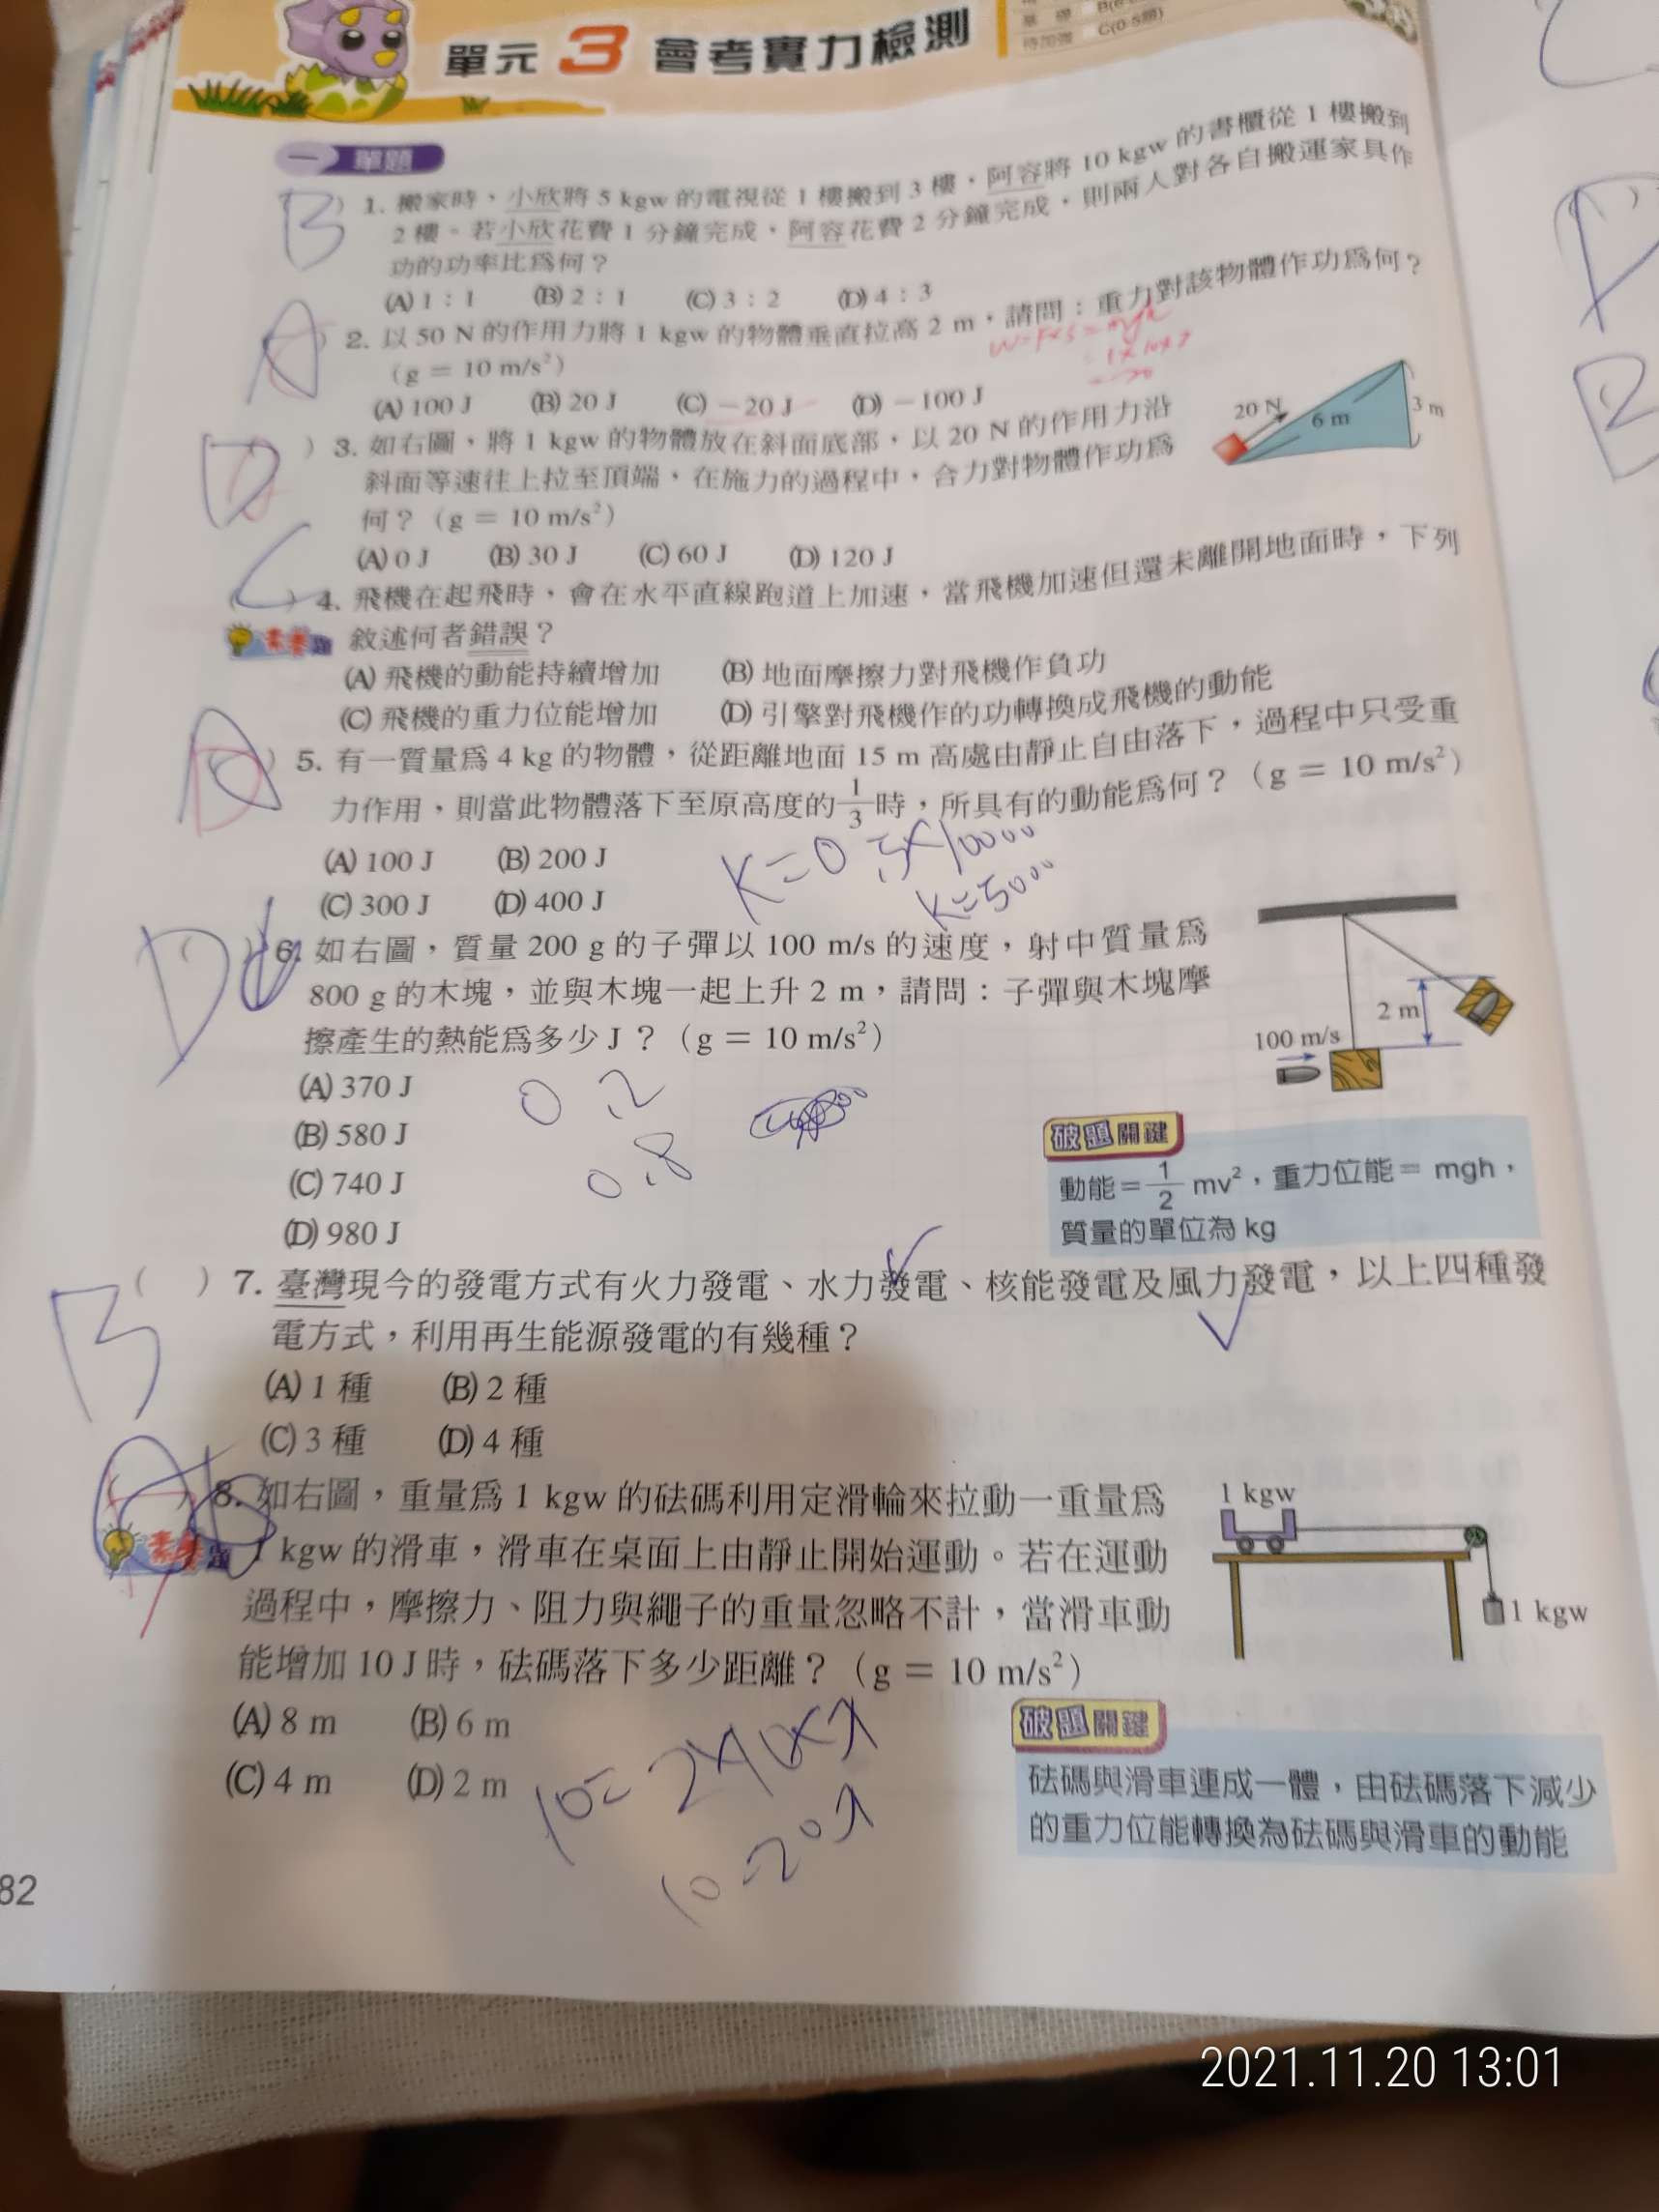 單元 3 會考實力檢測
基 礎
待加強 C(0-5題)
一 單題
B ) 1. 搬家時，小欣將 5 kgw 的電視從 1 樓搬到 3 樓，阿容將 10 kgw 的書櫃從 1 樓搬到
2 樓。若小欣花費 1 分鐘完成，阿容花費 2 分鐘完成，則兩人對各自搬運家具作
功的功率比為何？
(A) 1：1 (B) 2：1 (C) 3：2 (D) 4：3
A ) 2. 以 50 N 的作用力將 1 kgw 的物體垂直拉高 2 m，請問：重力對該物體作功為何？
（g = 10 m/s²）
W=F×S=mgh
(A) 100 J (B) 20 J (C) －20 J (D) －100 J
D ) 3. 如右圖，將 1 kgw 的物體放在斜面底部，以 20 N 的作用力沿
斜面等速往上拉至頂端，在施力的過程中，合力對物體作功為
何？（g = 10 m/s²）
(A) 0 J (B) 30 J (C) 60 J (D) 120 J
20 N
6 m
3 m
C ( ) 4. 飛機在起飛時，會在水平直線跑道上加速，當飛機加速但還未離開地面時，下列
素養題 敘述何者錯誤？
(A) 飛機的動能持續增加 (B) 地面摩擦力對飛機作負功
(C) 飛機的重力位能增加 (D) 引擎對飛機作的功轉換成飛機的動能
) 5. 有一質量為 4 kg 的物體，從距離地面 15 m 高處由靜止自由落下，過程中只受重
力作用，則當此物體落下至原高度的 1/3 時，所具有的動能為何？（g = 10 m/s²）
(A) 100 J (B) 200 J
(C) 300 J (D) 400 J
K=0.5×10000
K=5000
D ( ) 6. 如右圖，質量 200 g 的子彈以 100 m/s 的速度，射中質量為
800 g 的木塊，並與木塊一起上升 2 m，請問：子彈與木塊摩
擦產生的熱能為多少 J？（g = 10 m/s²）
(A) 370 J
(B) 580 J
(C) 740 J
(D) 980 J
0.2
0.8
2 m
100 m/s
破題關鍵
動能＝1/2 mv²，重力位能＝ mgh，
質量的單位為 kg
B ( ) 7. 臺灣現今的發電方式有火力發電、水力發電、核能發電及風力發電，以上四種發
電方式，利用再生能源發電的有幾種？
(A) 1 種 (B) 2 種
(C) 3 種 (D) 4 種
) 8. 如右圖，重量為 1 kgw 的砝碼利用定滑輪來拉動一重量為
素養題 1 kgw 的滑車，滑車在桌面上由靜止開始運動。若在運動
過程中，摩擦力、阻力與繩子的重量忽略不計，當滑車動
能增加 10 J 時，砝碼落下多少距離？（g = 10 m/s²）
(A) 8 m (B) 6 m
(C) 4 m (D) 2 m
1 kgw
1 kgw
破題關鍵
砝碼與滑車連成一體，由砝碼落下減少
的重力位能轉換為砝碼與滑車的動能
82
2021.11.20 13:01